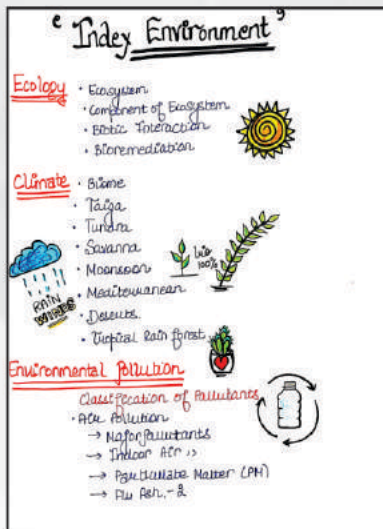 " Index Environment "
Ecology
• Ecosystem
• Component of Ecosystem
• Biotic Interaction
• Bioremediation
Climate
• Biome
• Taiga
• Tundra
• Savanna
• Moonsoon
• Mediterranean
• Deserts
• Tropical Rain forest
bio
100%
RAIN
WINDS
Environmental Pollution
Classification of Pollutants
• Air Pollution
→ Major pollutants
→ Indoor Air ,,
→ Particulate Matter (PM)
→ Flu Ash.-2